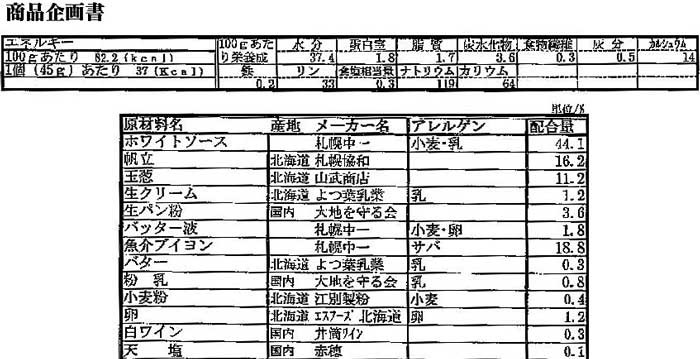 商品企画書
エネルギー 100gあた 水分 蛋白室 脂質 炭水化物 食物繊維 灰分 カルシュウム
100gあたり 82.2(kcal) り栄養成 37.4 1.8 1.7 3.6 0.3 0.5 14
1個(45g)あたり 37(Kcal) 鉄 リン 食塩相当量 ナトリウム カリウム
0.2 33 0.3 119 64
単位/g
原材料名 産地 メーカー名 アレルゲン 配合量
ホワイトソース 札幌中一 小麦・乳 44.1
帆立 北海道 札幌協和 16.2
玉葱 北海道 山武商店 11.2
生クリーム 北海道 よつ葉乳業 乳 1.2
生パン粉 国内 大地を守る会 3.6
バッター液 札幌中一 小麦・卵 1.8
魚介ブイヨン 札幌中一 サバ 18.8
バター 北海道 よつ葉乳業 乳 0.3
粉 乳 国内 大地を守る会 乳 0.8
小麦粉 北海道 江別製粉 小麦 0.4
卵 北海道 エスフーズ 北海道 卵 1.2
白ワイン 国内 井筒ワイン 0.3
天 塩 国内 赤穂 0.1